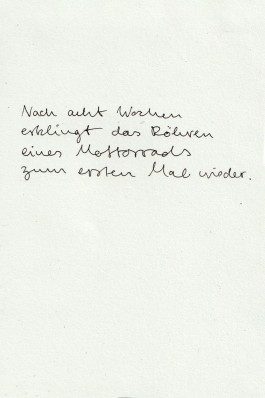 Nach acht Wochen
erklingt das Röhren
eines Mottorrads
zum ersten Mal wieder.